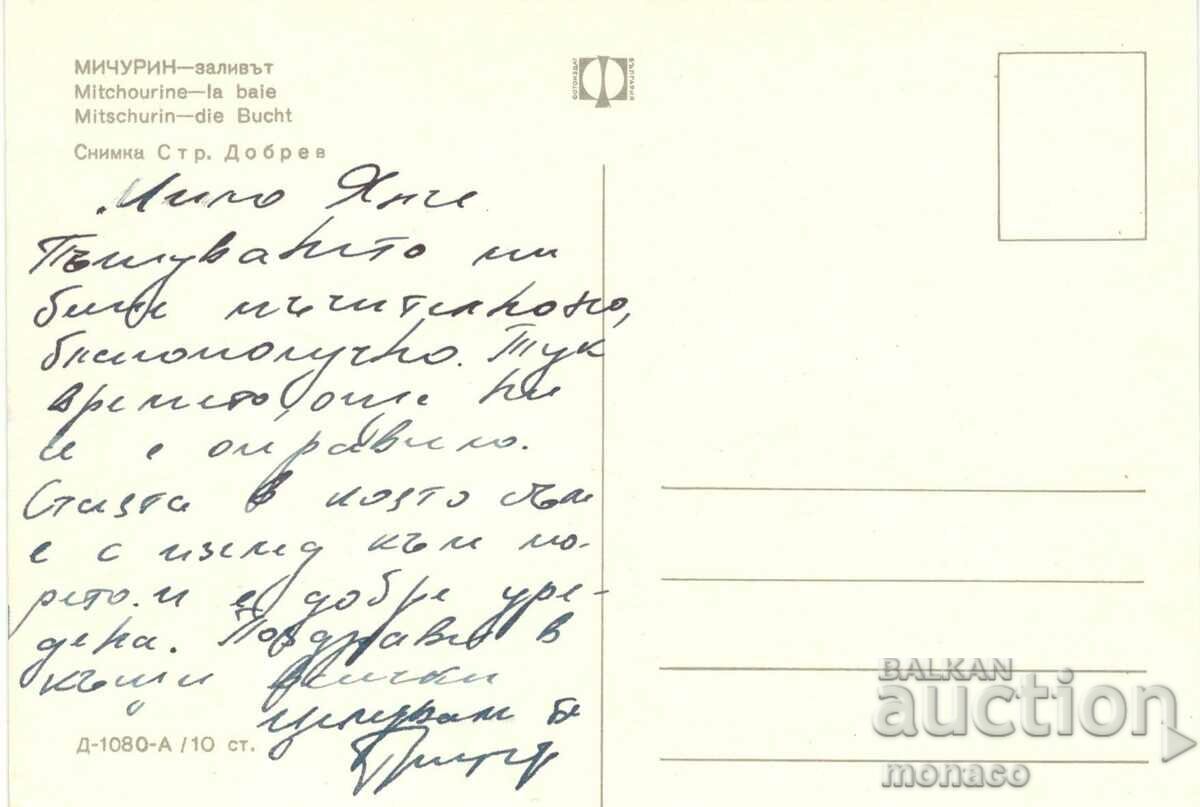 МИЧУРИН—заливът
Mitchourine—la baie
Mitschurin—die Bucht
Снимка Стр. Добрев
ФОТОИЗДАТ
БЪЛГАРИЯ
Мило
Пътуването ми
беше мъчително, но
благополучно. Тук
времето, още не
се е оправило.
Стаята в която съм
е с изглед към мо-
рето и е добре уре-
дена. Поздрави в
къщи всички
целувам те
Д-1080-А/10 ст.
BALKAN
auction
monaco